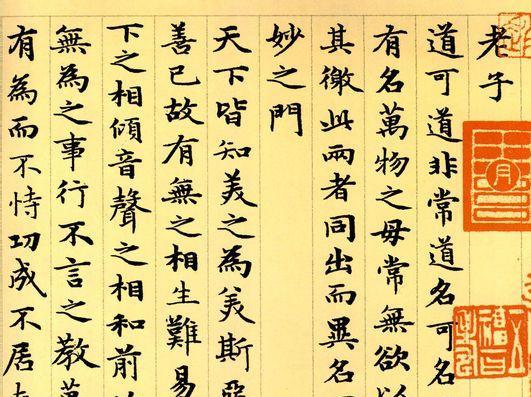 老子
道可道非常道名可名
有名萬物之母常無欲以
其徼此兩者同出而異名
妙之門
天下皆知美之為美斯惡
善已故有無之相生難易
下之相傾音聲之相和前
無為之事行不言之教萬
有為而不恃功成不居